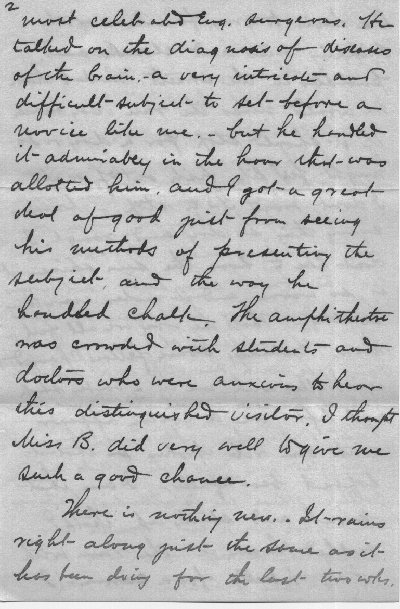 2
most celebrated Eng. surgeons. He
talked on the diagnosis of diseases
of the brain.-a very intricate and
difficult-subject-to set-before a
novice like me. - but he handled
it-admirabley in the hour that-was
allotted him. and I got-a great-
deal of good just-from seeing
his methods of presenting the
subject, and the way he
handled chalk. The amphitheatre
was crowded with students and
doctors who were anxious to hear
this distinguished visitor. I thought
Miss B. did very well to give me
such a good chance.
There is nothing new.. It-rains
right-along just the same as it-
has been doing for the last two wks.